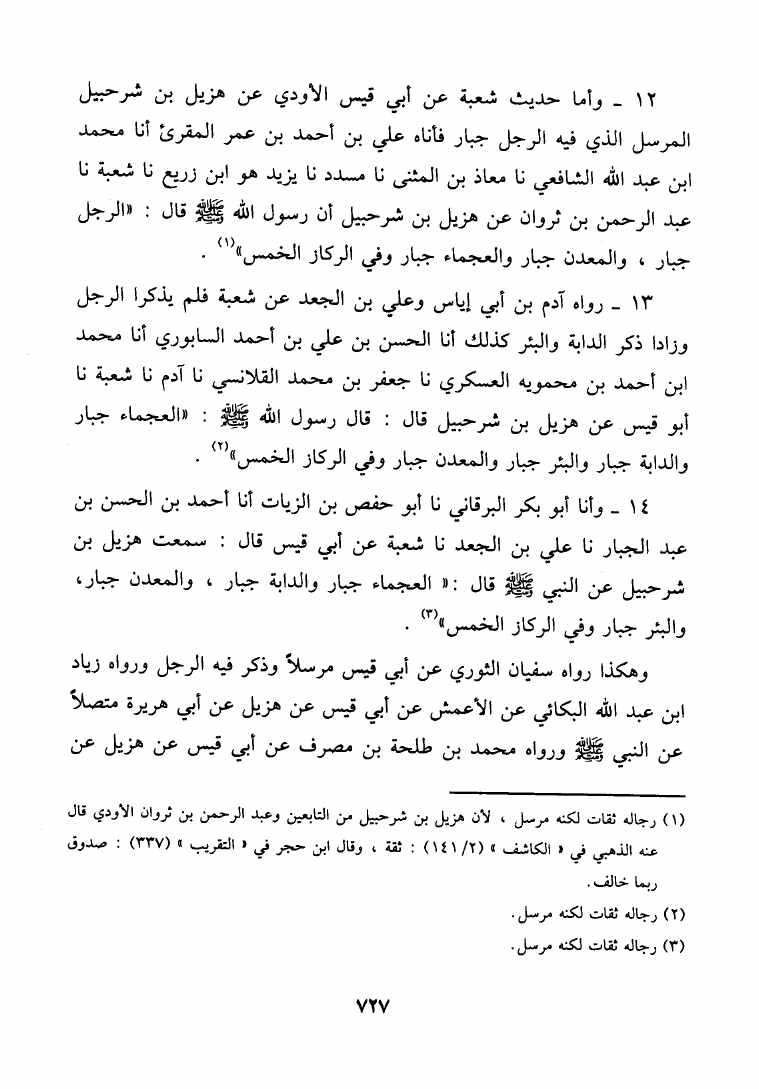 ١٢ ـ وأما حديث شعبة عن أبي قيس الأودي عن هزيل بن شرحبيل
المرسل الذي فيه الرجل جبار فأناه علي بن أحمد بن عمر المقرئ أنا محمد
ابن عبد الله الشافعي نا معاذ بن المثنى نا مسدد نا يزيد هو ابن زريع نا شعبة نا
عبد الرحمن بن ثروان عن هزيل بن شرحبيل أن رسول الله ﷺ قال : «الرجل
جبار ، والمعدن جبار والعجماء جبار وفي الركاز الخمس»(١) .
١٣ ـ رواه آدم بن أبي إياس وعلي بن الجعد عن شعبة فلم يذكرا الرجل
وزادا ذكر الدابة والبئر كذلك أنا الحسن بن علي بن أحمد السابوري أنا محمد
ابن أحمد بن محمويه العسكري نا جعفر بن محمد القلانسي نا آدم نا شعبة نا
أبو قيس عن هزيل بن شرحبيل قال : قال رسول الله ﷺ : «العجماء جبار
والدابة جبار والبئر جبار والمعدن جبار وفي الركاز الخمس»(٢) .
١٤ ـ وأنا أبو بكر البرقاني نا أبو حفص بن الزيات أنا أحمد بن الحسن بن
عبد الجبار نا علي بن الجعد نا شعبة عن أبي قيس قال : سمعت هزيل بن
شرحبيل عن النبي ﷺ قال :« العجماء جبار والدابة جبار ، والمعدن جبار،
والبئر جبار وفي الركاز الخمس»(٣) .
وهكذا رواه سفيان الثوري عن أبي قيس مرسلاً وذكر فيه الرجل ورواه زياد
ابن عبد الله البكائي عن الأعمش عن أبي قيس عن هزيل عن أبي هريرة متصلاً
عن النبي ﷺ ورواه محمد بن طلحة بن مصرف عن أبي قيس عن هزيل عن
(١) رجاله ثقات لكنه مرسل ، لأن هزيل بن شرحبيل من التابعين وعبد الرحمن بن ثروان الأودي قال
عنه الذهبي في « الكاشف » (١٤١/٢) : ثقة ، وقال ابن حجر في « التقريب » (٣٣٧) : صدوق
ربما خالف.
(٢) رجاله ثقات لكنه مرسل.
(٣) رجاله ثقات لكنه مرسل.
٧٢٧